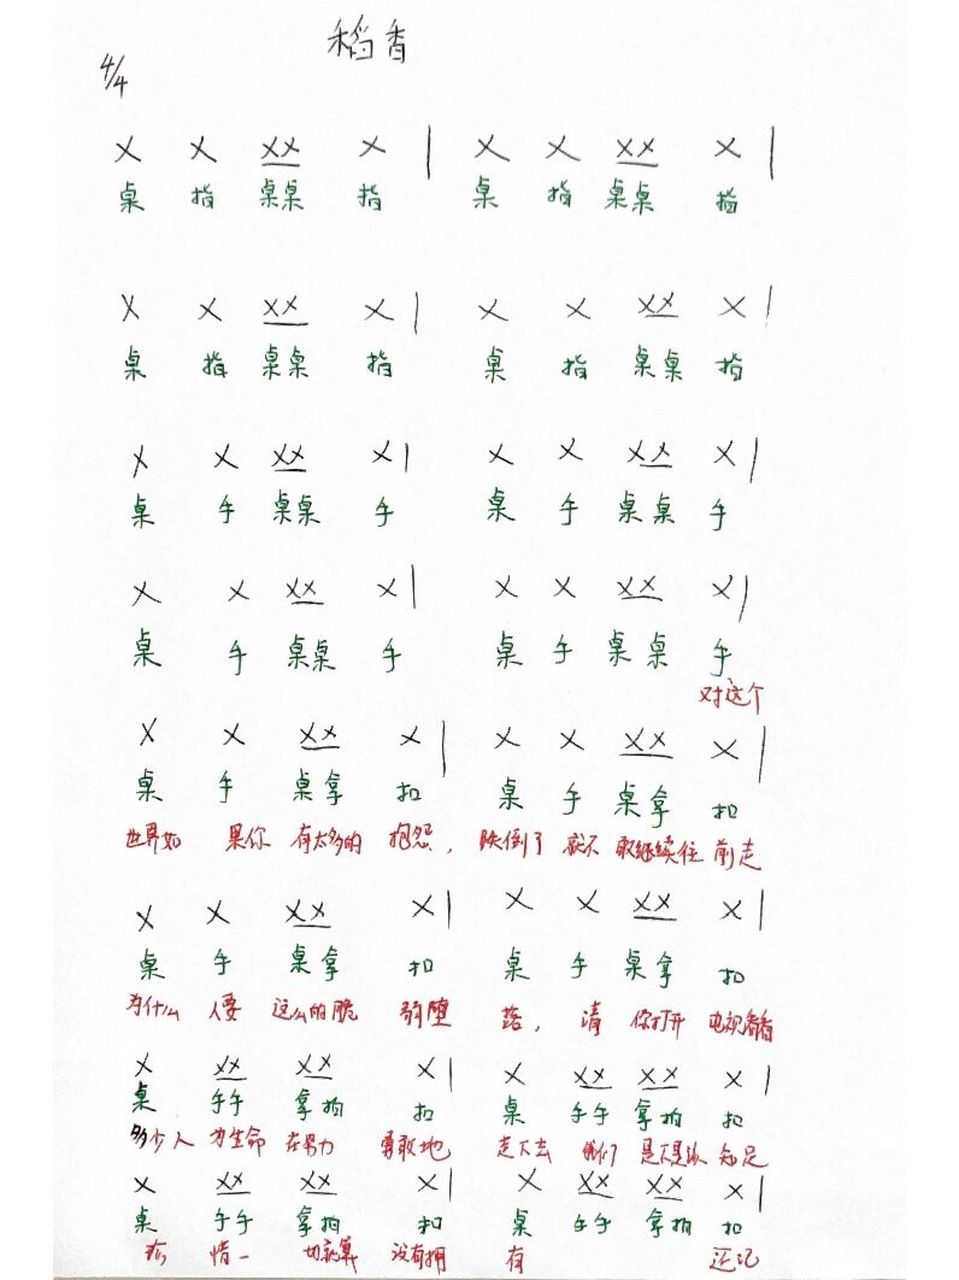 稻香
4/4
X X XX X | X X XX X |
桌 指 桌桌 指 桌 指 桌桌 指
X X XX X | X X XX X |
桌 指 桌桌 指 桌 指 桌桌 指
X X XX X | X X XX X |
桌 手 桌桌 手 桌 手 桌桌 手
X X XX X | X X XX X |
桌 手 桌桌 手 桌 手 桌桌 手
对这个
X X XX X | X X XX X |
桌 手 桌拿 扣 桌 手 桌拿 扣
世界如 果你 有太多的 抱怨, 跌倒了 就不 敢继续往 前走
X X XX X | X X XX X |
桌 手 桌拿 扣 桌 手 桌拿 扣
为什么 人要 这么的脆 弱堕 落, 请 你打开 电视看看
X XX XX X | X XX XX X |
桌 手手 拿拍 扣 桌 手手 拿拍 扣
多少人 为生命 在努力 勇敢地 走下去 我们 是不是该 知足
X XX XX X | X XX XX X |
桌 手手 拿拍 扣 桌 手手 拿拍 扣
情一 切就算 没有拥 有 还记